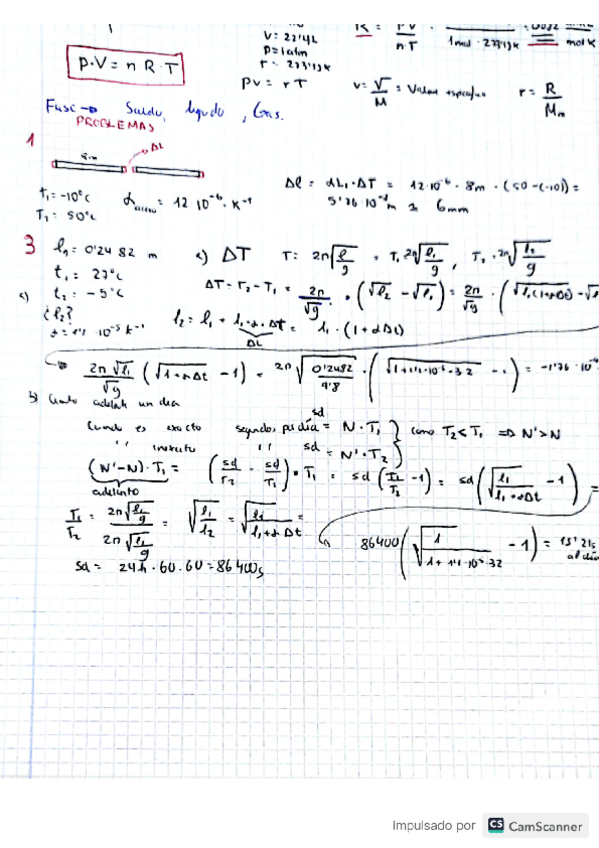 V = 22'4 L
P = 1 atm
T = 273'15 K
R = PV / n·T
1 mol · 273'15 K
mol K
P·V = n R·T
PV = rT
v = V/M = Volumen específico
r = R/Mm
Fase → Sólido, líquido, Gas.
PROBLEMAS
1
8m
ΔL
t₁ = -10°C
T₁ = 50°C
α acero = 12·10⁻⁶·K⁻¹
Δl = αL₁·ΔT = 12·10⁻⁶·8m·(50-(-10)) =
5'76·10⁻³m ≈ 6mm
3
l₁ = 0'2482 m
t₁ = 27°C
t₂ = -5°C
¿l₂?
α = 1'1·10⁻⁵ K⁻¹
a) ΔT T: 2π√(l/g) = T₁ 2π√(l₁/g), T₂ = 2π√(l₂/g)
ΔT = T₂ - T₁ = 2π/√g · (√l₂ - √l₁) = 2π/√g · (√l₁(1+αΔt) - √l
l₂ = l₁ + l₁·α·Δt = l₁·(1+αΔt)
ΔL
2π√l₁/√g (√1+αΔt - 1) = 2π√(0'2482/9'8) · (√1+1'1·10⁻⁵·32 - 1) = -1'76·10⁻⁴
b) Cuanto adelanta un dia
Cuando es exacto segundos por día = N·T₁
'' incorrecto '' sd = N'·T₂
como T₂<T₁ ⇒ N'>N
(N'-N)·T₁ = (sd/T₂ - sd/T₁)·T₁ = sd(T₁/T₂ - 1) = sd(√(l₁/l₁+αΔt) - 1) =
adelanto
T₁/T₂ = 2π√(l₁/g) / 2π√(l₂/g) = √(l₁/l₂) = √(l₁/l₁+αΔt) =
86400(√(1/1+1'1·10⁻⁵·32) - 1) = 15'21s
al día
sd = 24h·60·60 = 86400s
Impulsado por CS CamScanner